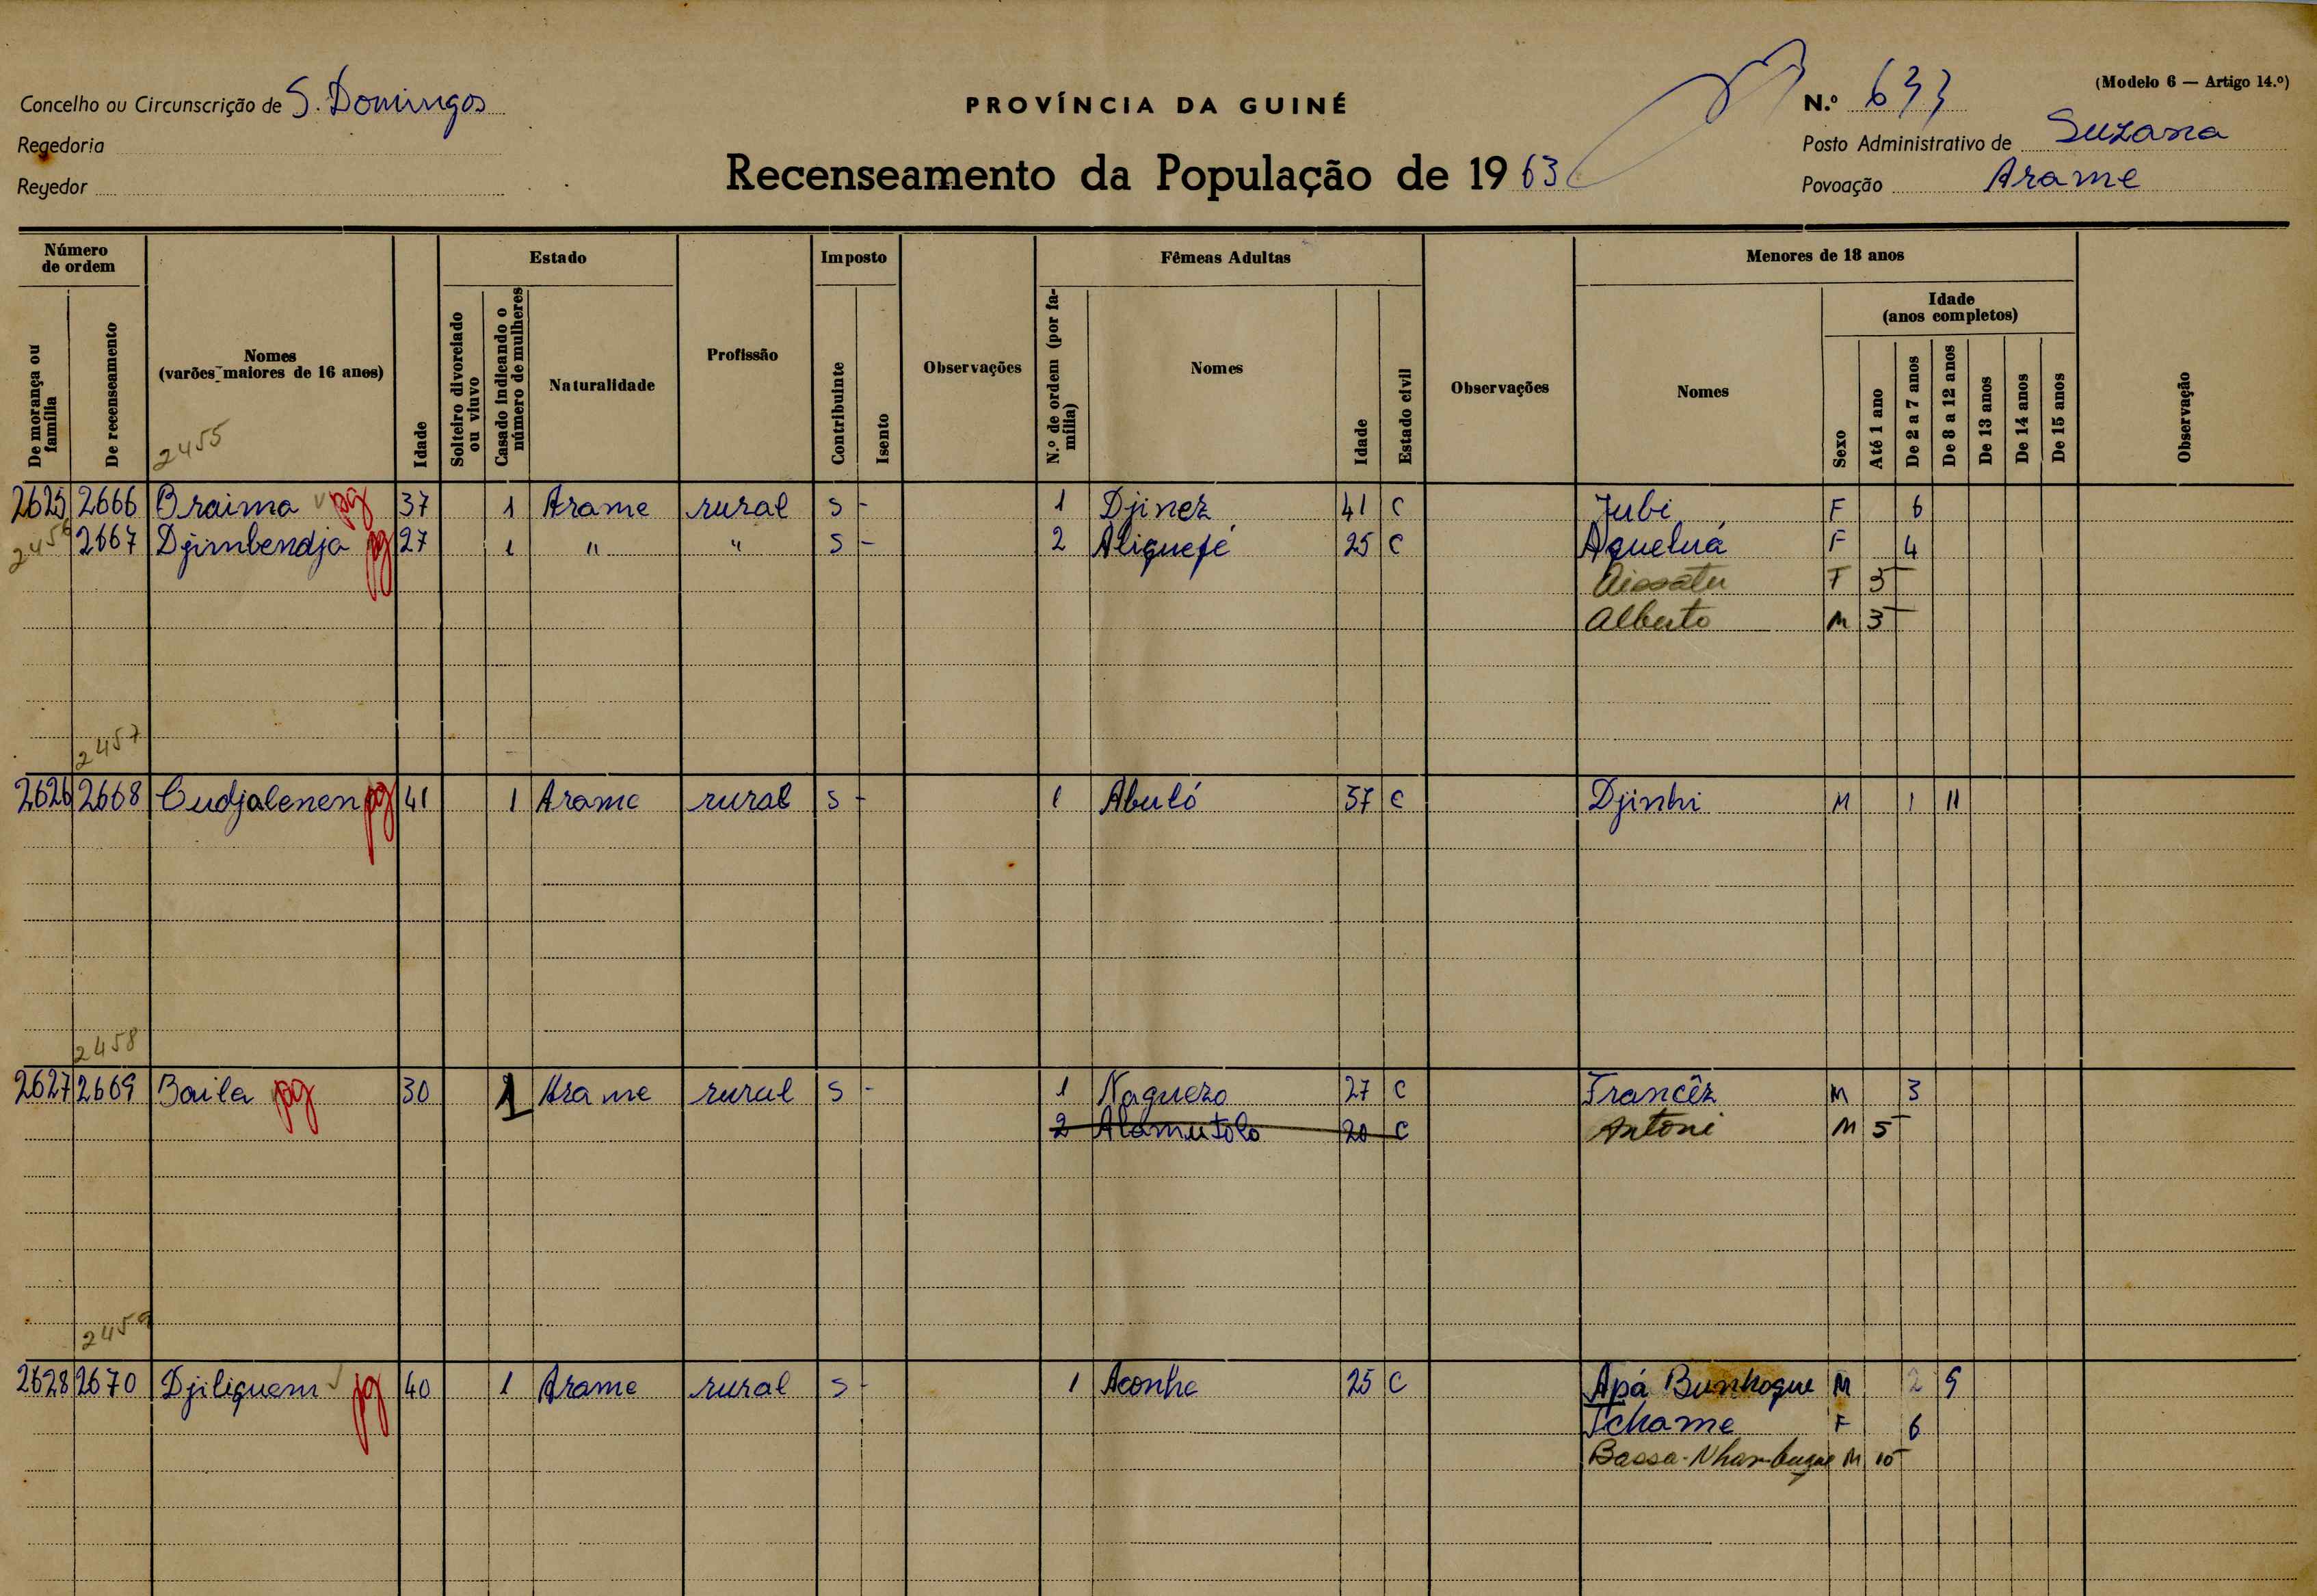 (Modelo 6 — Artigo 14.º)
Concelho ou Circunscrição de S. Domingos
PROVÍNCIA DA GUINÉ
N.º 633
Regedoria
Posto Administrativo de Suzana
Regedor
Recenseamento da População de 1963
Povoação Arame
Número de ordem
Estado
Imposto
Fêmeas Adultas
Menores de 18 anos
De morança ou família
De recenseamento
Nomes (varões maiores de 16 anos)
Idade
Solteiro divorciado ou viuvo
Casado indicando o número de mulheres
Naturalidade
Profissão
Contribuinte
Isento
Observações
N.º de ordem (por família)
Nomes
Idade
Estado civil
Observações
Nomes
Sexo
Idade (anos completos)
Até 1 ano
De 2 a 7 anos
De 8 a 12 anos
De 13 anos
De 14 anos
De 15 anos
Observação
2455
2625 2666 Braima pg 37 1 Arame rural S - 1 Djinez 41 C Jubi F 6
2456 2667 Djimbendja pg 27 1 " " S - 2 Aliquefé 25 C Aqueluá F 4
Aissatu F 5
Alberto M 3
2457
2626 2668 Cudjalenen pg 41 1 Arame rural S - 1 Abuló 37 C Djinhi M 1 11
2458
2627 2669 Baila pg 30 1 Arame rural S - 1 Naquezo 27 C Francêz M 3
2 Alamutolo 20 C Antoni M 5
2459
2628 2670 Djiliquem pg 40 1 Arame rural S - 1 Aconha 25 C Apá Bunhoque M 2 9
Tchame F 6
Bassa- M 10